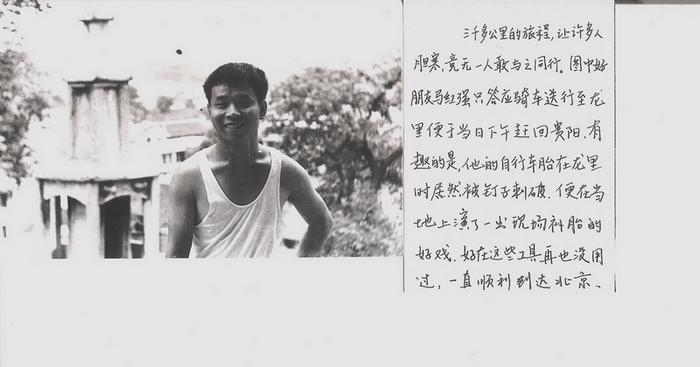 三千多公里的旅程,让许多人
胆寒,竟无一人敢与之同行。图中好
朋友马红强只答应骑车送行至龙
里便于当日下午赶回贵阳.有
趣的是,他的自行车胎在龙里
时居然被钉子刺破.便在当
地上演了一出现场补胎的
好戏.好在这些工具再也没用
过,一直顺利到达北京、